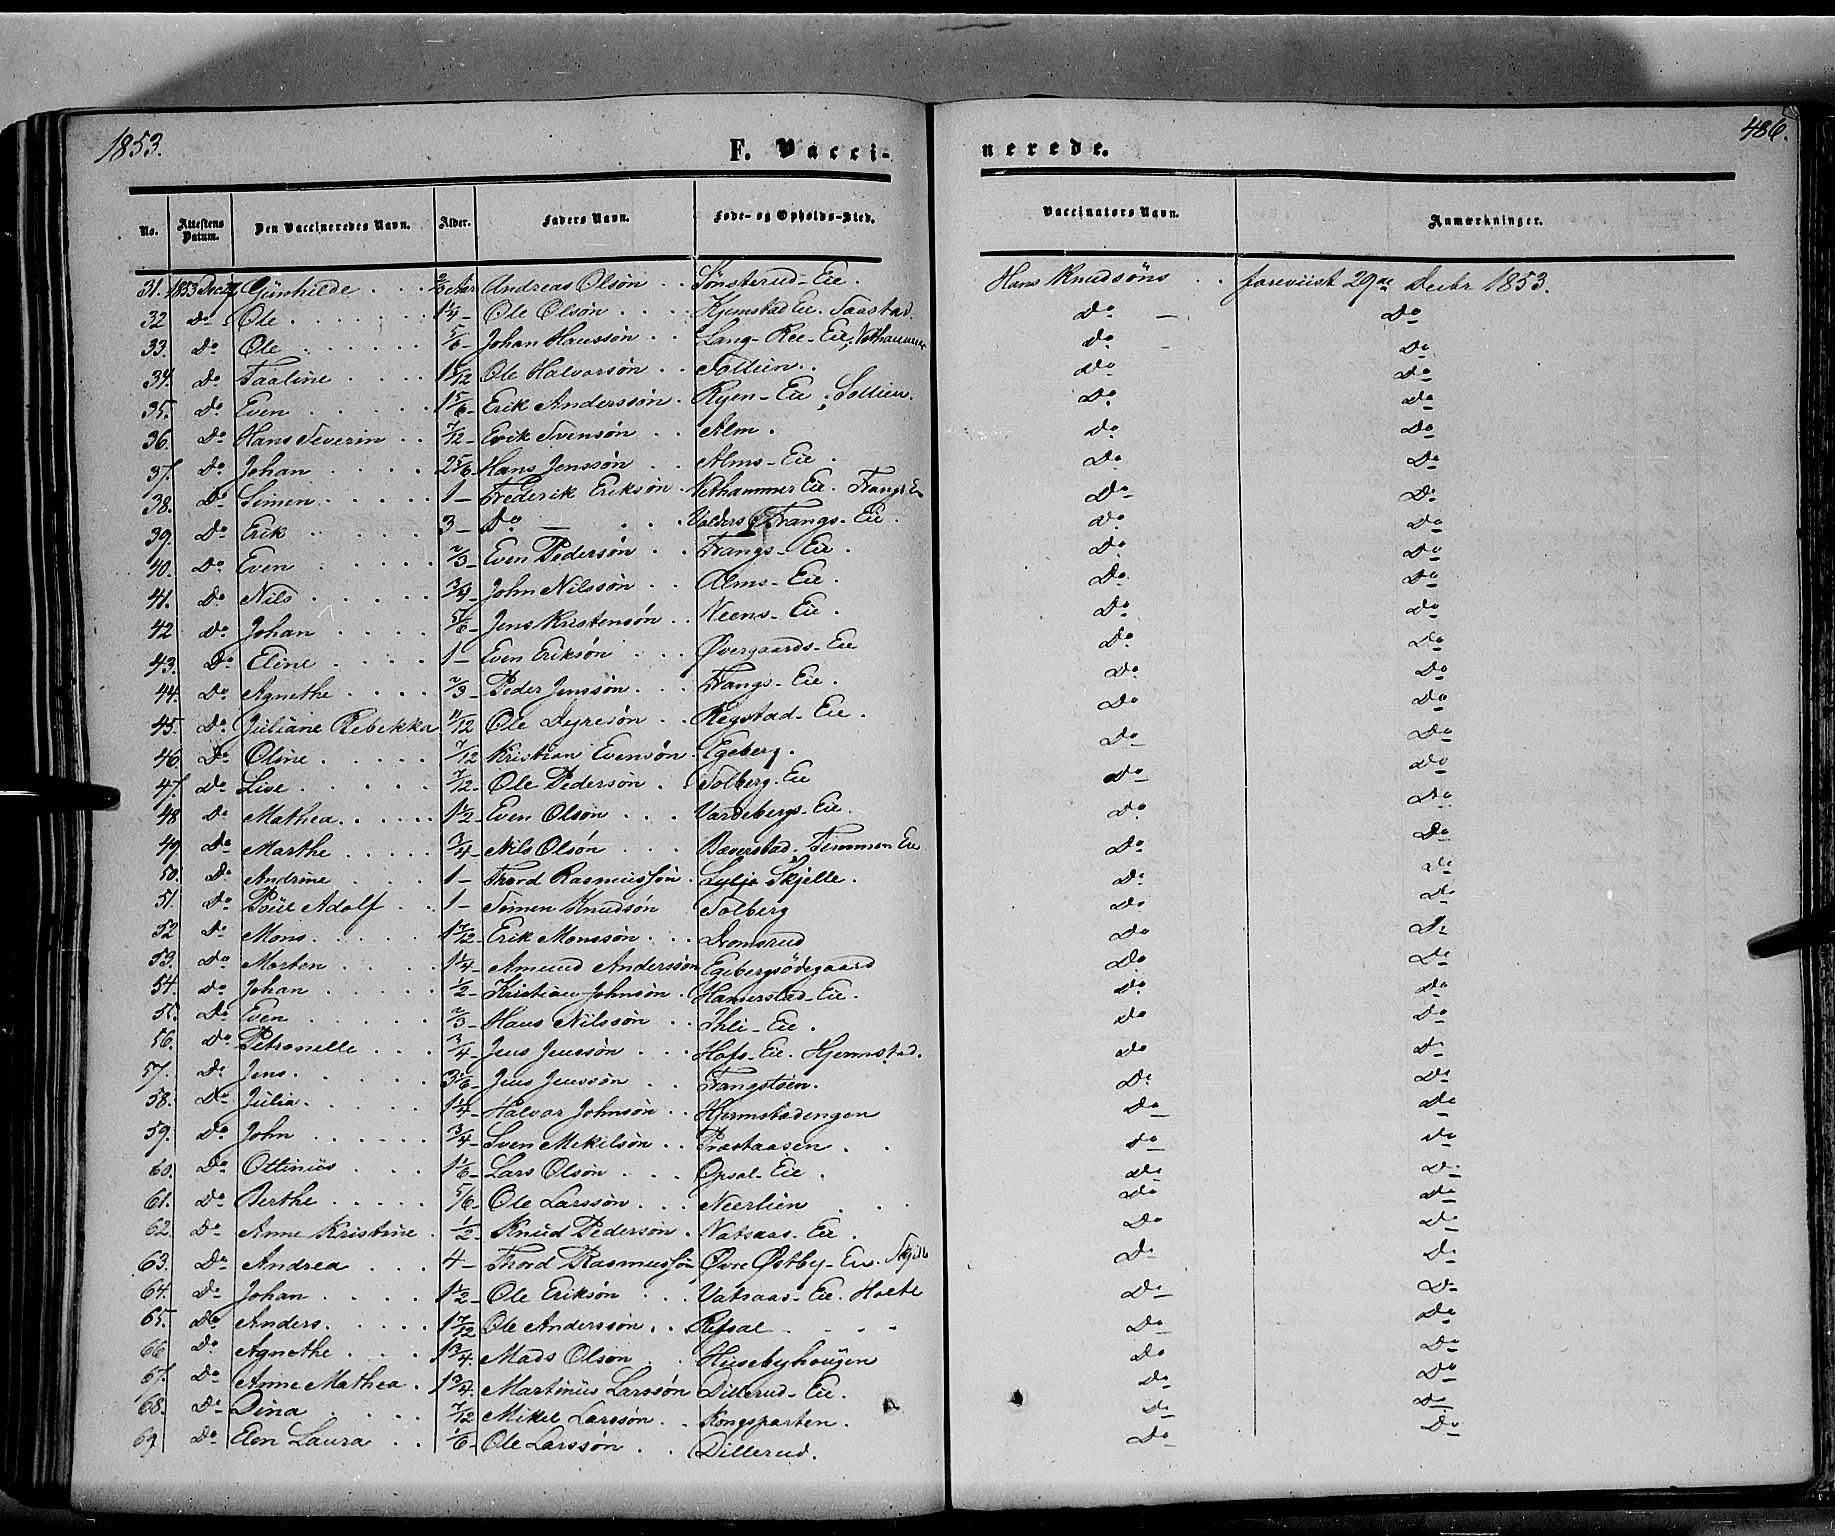 1853.
486.
F. Vacci-
nerede.
No. Attestens Datum. Den Vaccineredes Navn. Alder. Faders Navn. Føde- og Opholds-Sted. Vaccinators Navn. Anmærkninger.
31. 1853 Dec 29 Gunhilde . . 2/3 Aar Andreas Olsøn . . Sønsterud-Eie. Hans Knudsøns . . foreviist 29de Decbr 1853.
32 Do Ole . . . 1 1/4 - Ole Olsøn . . . Hjemstad Eie. Saastad. Do - Do
33. Do Ole . . . 5/6 - Johan Hanssøn . . Lang-Ree-Eie, Vethammer Do - Do
34. Do Taaline . . . 1 5/12 Ole Halvorsøn . . Sollien. Do Do
35. Do Even . . . 1 5/6 - Erik Anderssøn . Ryen-Eie; Sollien. Do Do
36. Do Hans Severin . . 7/12 - Erik Svensøn . . Alm. Do Do
37. Do Johan . . . 2 5/6 - Hans Jenssøn . . Alms-Eie. Do Do
38. Do Simen . . . 1 - Frederik Eriksøn . Vethammer Eie. Frangs E Do Do
39. Do Erik . . . 3 - Do - . . Valders Frangs-Eie. Do Do
40. Do Even . . . 2/3 - Even Pedersøn . . Frangs-Eie. Do Do
41. Do Nils . . . 3/4 - John Nilssøn . . Alms-Eie. Do Do
42 Do Johan . . . 5/6 - Jens Kristensøn . . Neens-Eie. Do Do
43. Do Eline . . . 1 - Even Eriksøn . . . Øvergaards-Eie Do Do
44. Do Agnethe . . . 2/3 - Peder Jenssøn . . . Frangs-Eie. Do Do
45. Do Juliane Rebekka 11/12 Ole Dyresøn . . Regstad-Eie. Do Do
46. Do Oline . . . 7/12 Kristian Evensøn . Egeberg. Do Do
47. Do Lise . . . 7/12 - Ole Pedersøn . . Solberg-Eie Do Do
48 Do Mathea . . . 1 1/2 - Even Olsøn . . . Vardebergs-Eie. Do Do
49. Do Marthe . . . 3/4 - Nils Olsøn . . . Bæverstad. Eie Do Do
50. Do Andrine . . . 1 - Thord Rasmussøn . Lylje Skjelle. Do Do
51. Do Poül Adolf . . 1 - Simen Knudsøn Solberg Do Do
52 Do Mons . . . 1 7/12 - Erik Monssøn . . . Dromsrud Do Do
53. Do Morten . . . 1 1/4 - Amund Anderssøn Egebergsødegaard Do Do
54. Do Johan . . . 1/2 - Kristian Johnsøn . Hamerstad-Eie. Do Do
55. Do Even . . . 2/3 - Hans Nilssøn . . Ihli-Eie. Do Do
56. Do Petronelle . . . 3/4 - Jens Jenssøn . . . Hofs-Eie. Hjermstad. Do Do
57. Do Jens . . . 3 1/6 - Jens Jenssøn . . Frangstøen. Do Do
58. Do Julia . . . 1 1/4 - Halvor Johnsøn . . Hjermstadengen Do Do
59. Do John . . . 3/4 - Sven Mikelsøn . . Præstaasen . . Do Do
60. Do Ottinüs . . . 1 1/6 - Lars Olsøn . . . Opsal-Eie. Do Do
61. Do Berthe . . . 5/6 - Ole Larssøn . . . Neerlien Do Do
62. Do Anne Kristine . 1/2 - Knud Pedersøn . Natsaas-Eie. Do Do
63. Do Andrea . . . 4 - Thord Rasmussøn Øvre Østby-Eie. Do Do
64. Do Johan . . . 1 1/2 - Ole Eriksøn . . . Vatsaas-Eie. Holte Do Do
65. Do Anders . . . 1 7/12 Ole Anderssøn . . Refsal - - - - Do Do
66 Do Agnethe . . . 1 3/4. Mads Olsøn . . Hüsebyhoügen Do Do
67. Do Anne Mathea . 1 3/4. Martinüs Larssøn Dillerud-Eie. Do Do
68. Do Dina . . . 7/12 - Mikel Larssøn . . Kongsparten. Do Do
69 Do Elen Laura . . 1/6 - Ole Larssøn . . Dillerud. Do Do